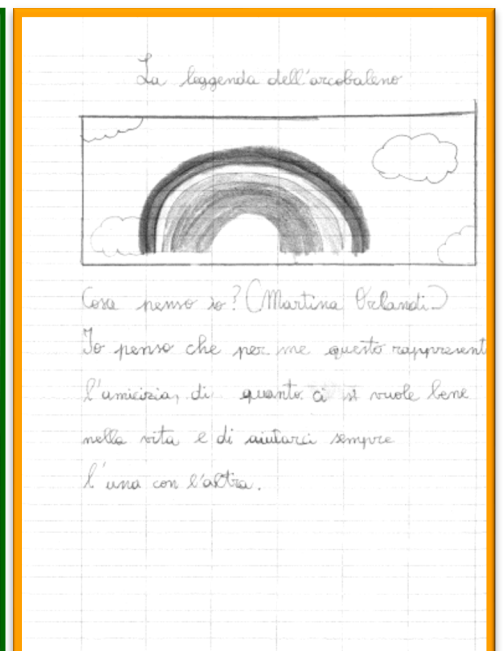 La leggenda dell'arcobaleno
Cosa penso io? (Martina Orlandi)
Io penso che per me questo rappresent
l'amicizia, di quanto ci si vuole bene
nella vita e di aiutarci sempre
l'una con l'altra.